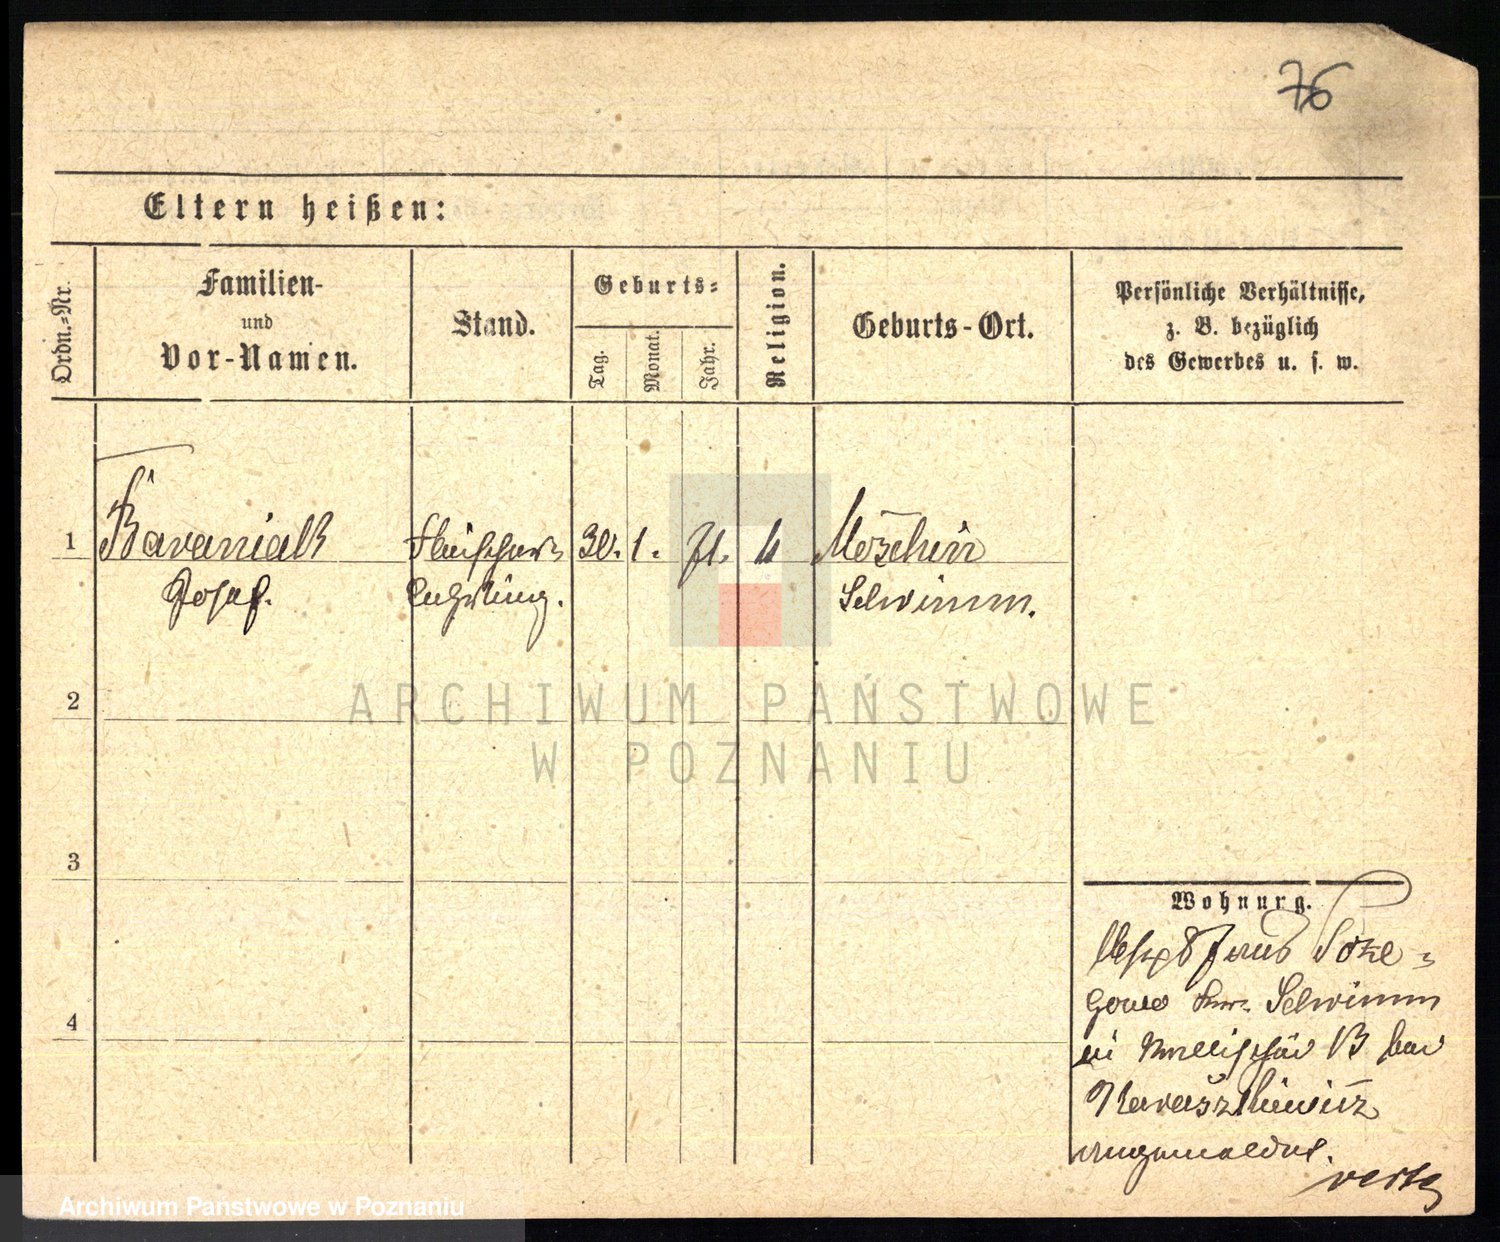 76
Eltern heißen:
Ordn.-Nr.
Familien-
und
Vor-Namen.
Stand.
Geburts-
Tag.
Monat.
Jahr.
Religion.
Geburts-Ort.
Persönliche Verhältnisse,
z. B. bezüglich
des Gewerbes u. s. w.
1
Baraniak
Josef.
Fleischer-
Lehrling.
30.
1.
71.
k
Moschin
Schrimm.
2
3
4
Wohnung.
aus
Schrimm
in B bei
angemeldet.
ARCHIWUM PAŃSTWOWE
W POZNANIU
Archiwum Państwowe w Poznaniu